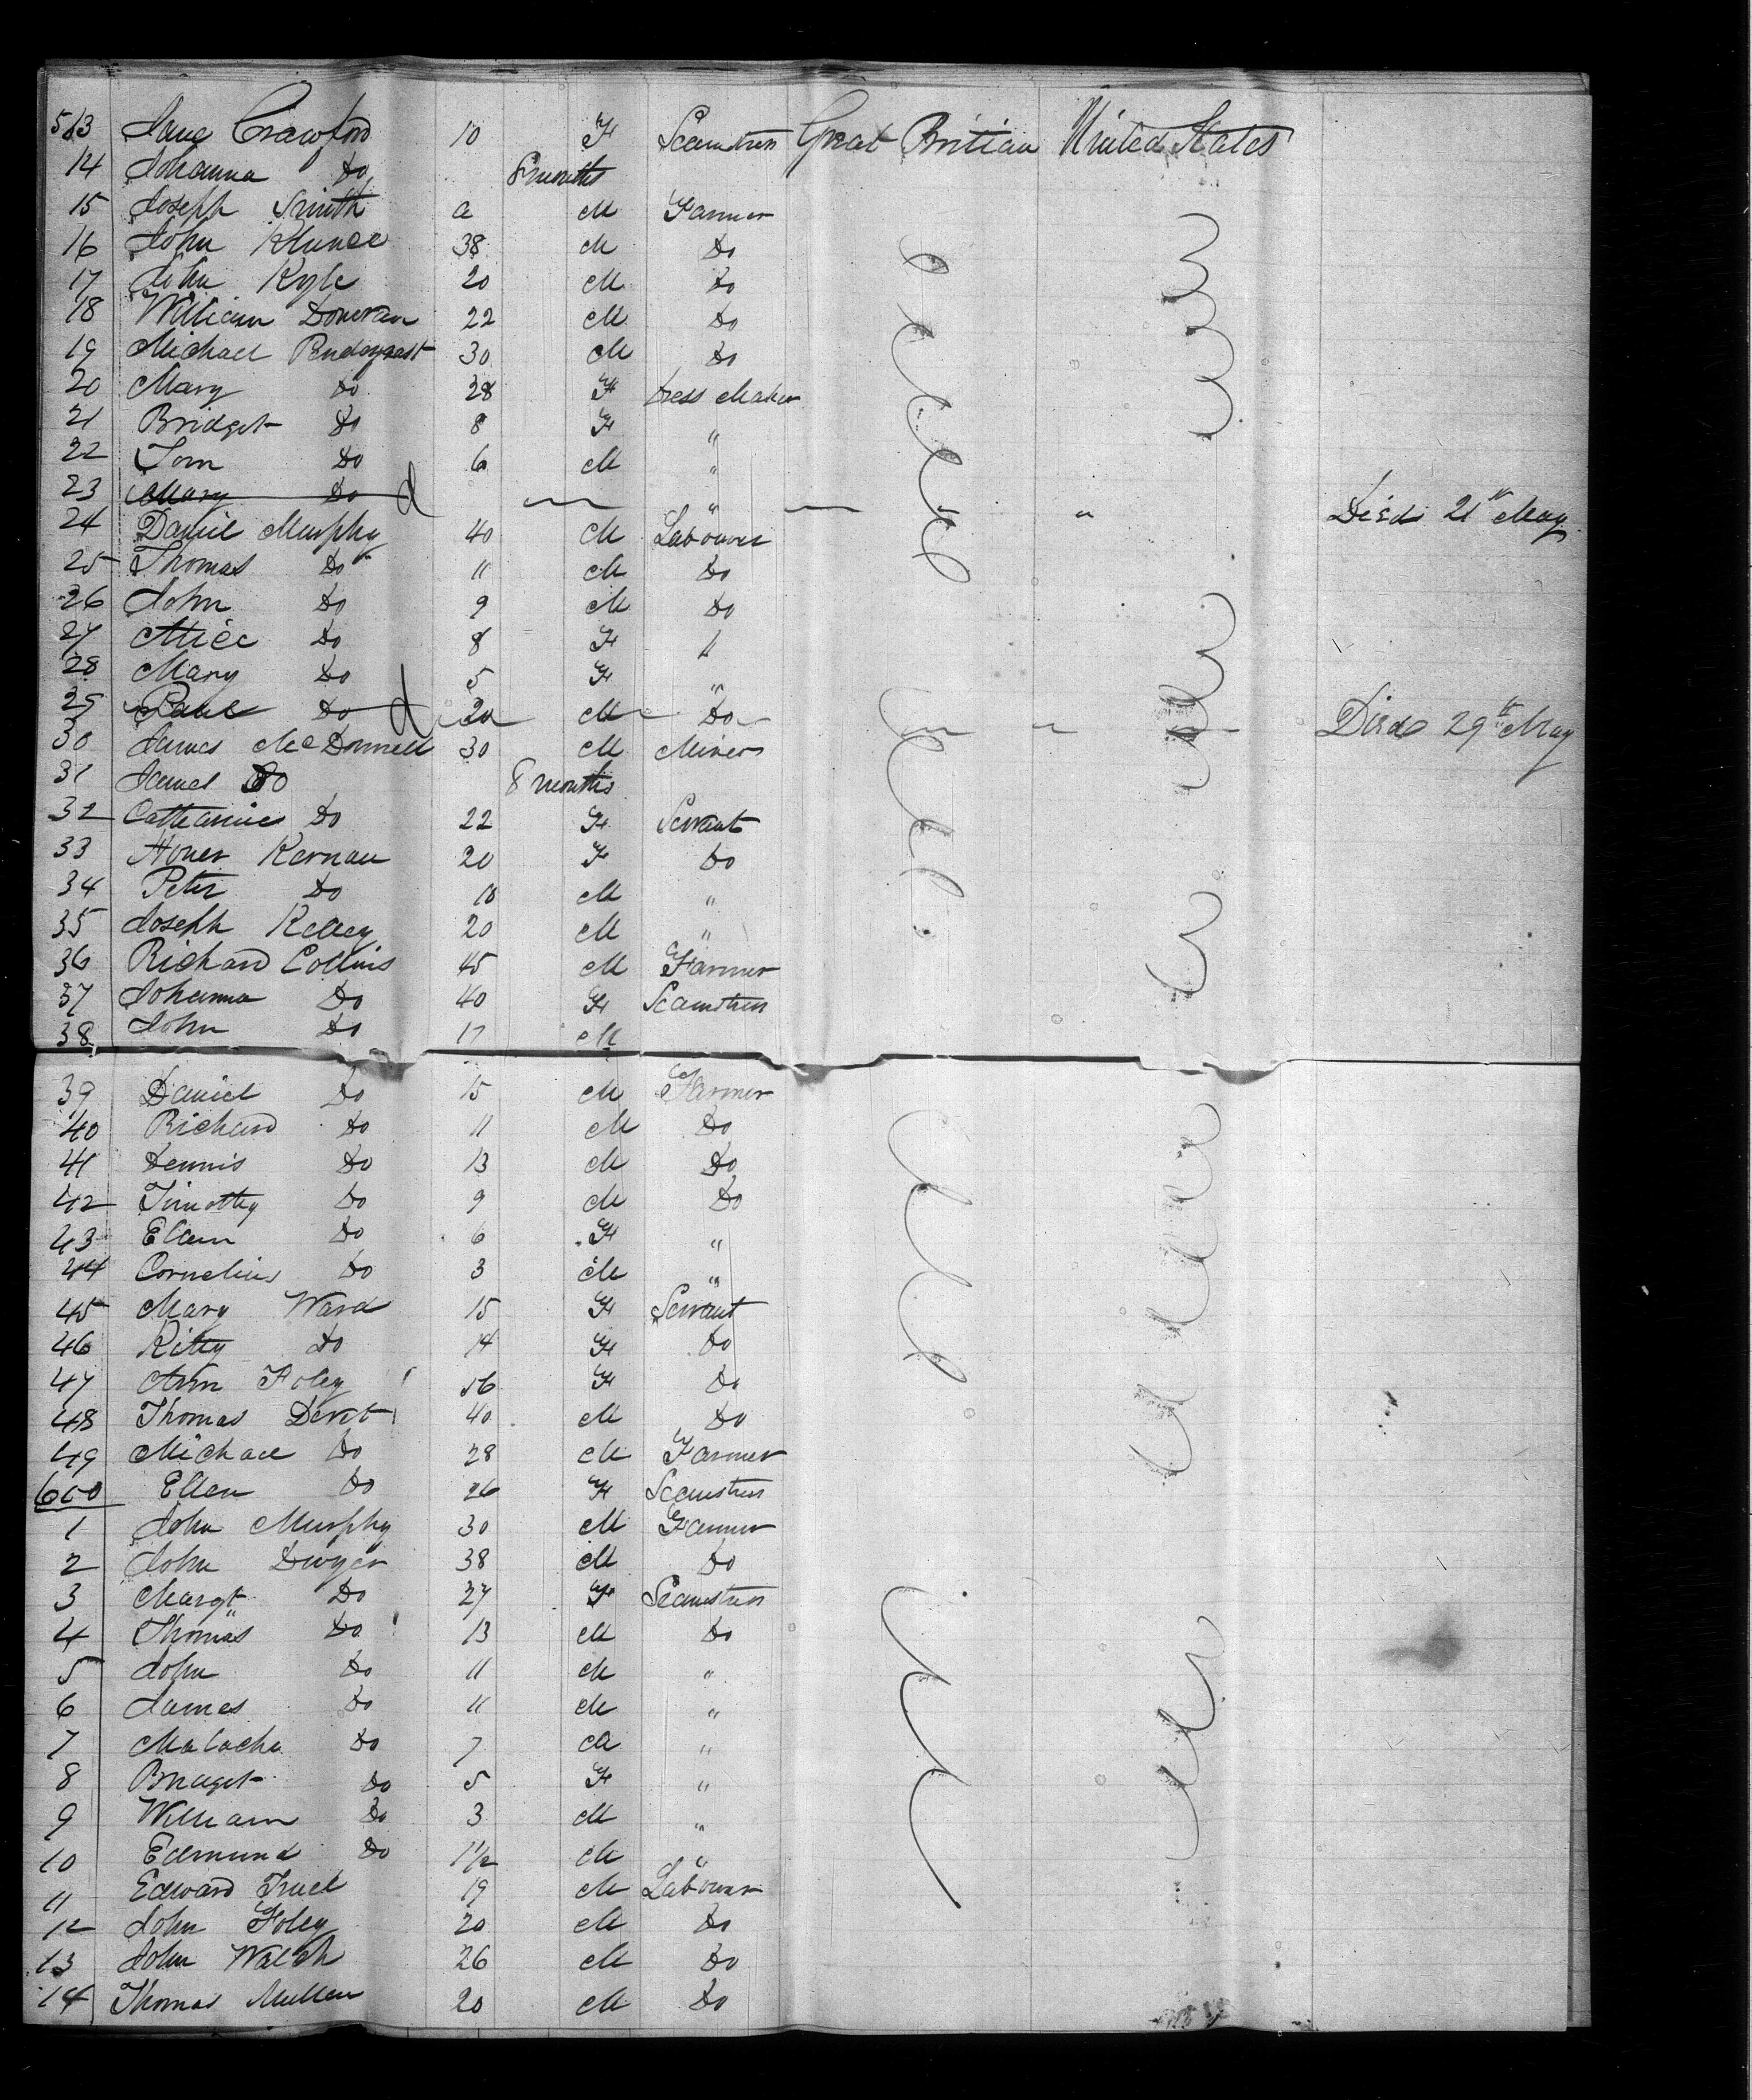 513 Jane Crawford 10 F Seamstress Great Britian United States
14 Johanna Do 8 months
15 Joseph Smith a M Farmer
16 John 38 M Do
17 John Kyle 20 M Do
18 William Donovan 22 M Do
19 Michael 30 M Do
20 Mary Do 28 F Dress Maker
21 Bridget Do 8 F "
22 Tom Do 6 M "
23 Mary Do " " " Died 21st May
24 Daniel Murphy 40 M Labourer
25 Thomas Do 11 M Do
26 John Do 9 M Do
27 Alice Do 8 F "
28 Mary Do 5 F "
29 Do 20 M Do " " Died 29th May
30 James McDonnell 30 M Miner
31 James Do 8 months
32 Catharine Do 22 F Servant
33 Honer Kernan 20 F Do
34 Peter Do 10 M "
35 Joseph Kelley 20 M "
36 Richard Collins 45 M Farmer
37 Johanna Do 40 F Seamstress
38 John Do 17 M
39 Daniel Do 15 M Farmer
40 Richard Do 11 M Do
41 Dennis Do 13 M Do
42 Timothy Do 9 M Do
43 Ellen Do 6 F "
44 Cornelius Do 3 M "
45 Mary Ward 15 F Servant
46 Kitty Do 14 F Do
47 Ann Foley 56 F Do
48 Thomas 40 M Do
49 Michael Do 28 M Farmer
Ellen Do 26 F Seamstress
1 John Murphy 30 M Farmer
2 John Dwyer 38 M Do
3 Margt Do 27 F Seamstress
4 Thomas Do 13 M Do
5 John Do 11 M "
6 James Do 11 M "
7 Malacha Do 7 M "
8 Bridget Do 5 F "
9 William Do 3 M "
10 Edmund Do 1½ M "
11 Edward 19 M Labourer
12 John Foley 20 M Do
13 John Walch 26 M Do
14 Thomas Mullen 20 M Do